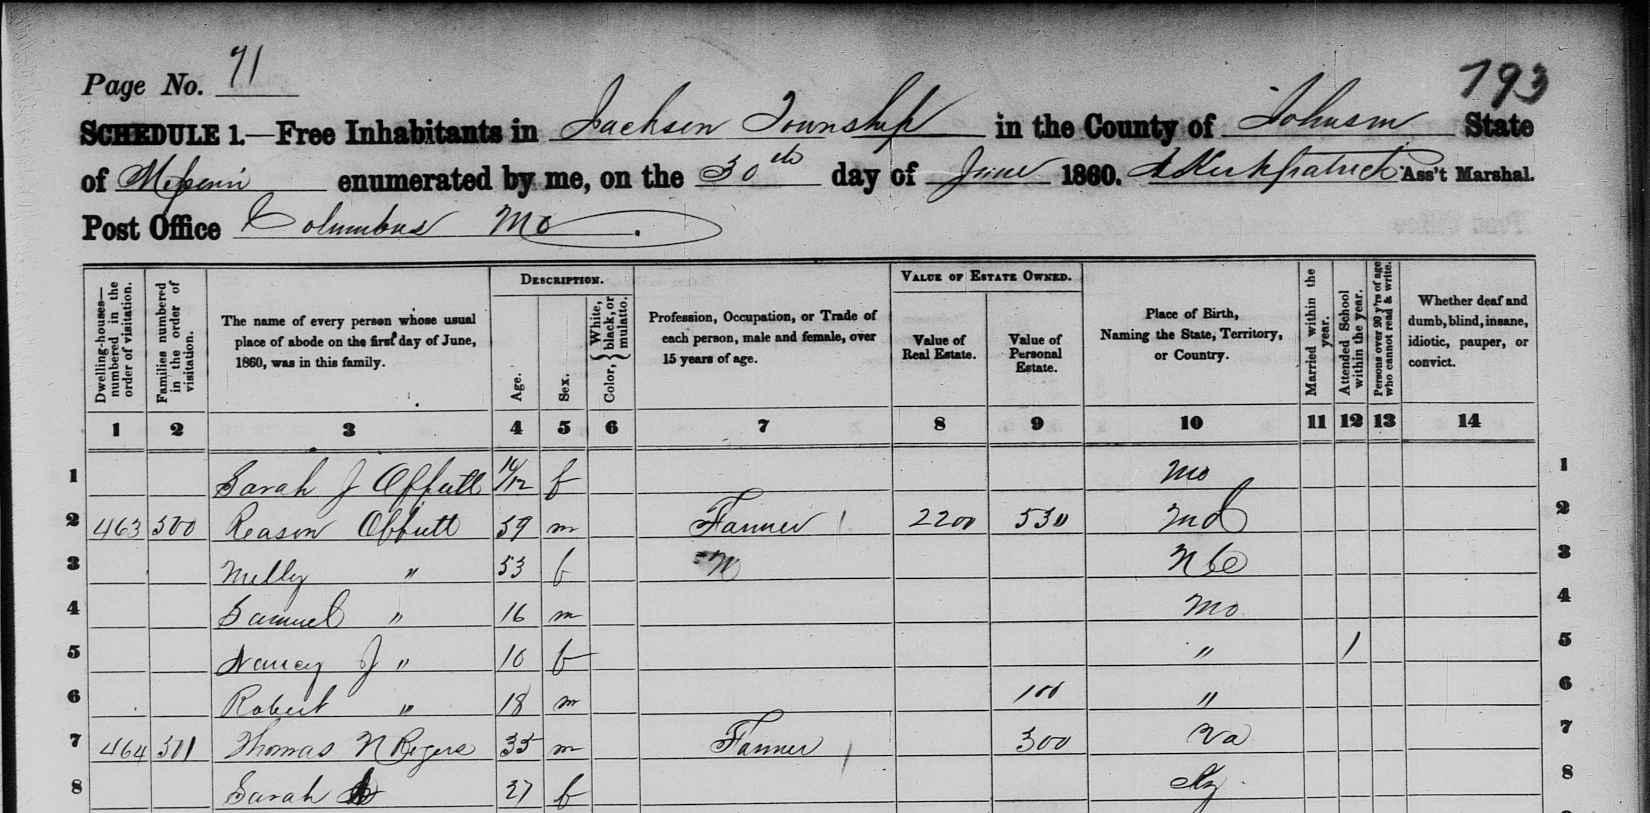 Page No. 71
793
SCHEDULE 1.—Free Inhabitants in Jackson Township in the County of Johnson State
of Missouri enumerated by me, on the 30th day of June 1860. Kirkpatrick Ass't Marshal.
Post Office Columbus Mo
Dwelling-houses—numbered in the order of visitation.
Families numbered in the order of visitation.
The name of every person whose usual place of abode on the first day of June, 1860, was in this family.
DESCRIPTION.
Age.
Sex.
Color, { White, black, or mulatto.
Profession, Occupation, or Trade of each person, male and female, over 15 years of age.
VALUE OF ESTATE OWNED.
Value of Real Estate.
Value of Personal Estate.
Place of Birth, Naming the State, Territory, or Country.
Married within the year.
Attended School within the year.
Persons over 20 y'rs of age who cannot read & write.
Whether deaf and dumb, blind, insane, idiotic, pauper, or convict.
1 2 3 4 5 6 7 8 9 10 11 12 13 14
1 Sarah J Offutt 10/12 f Mo 1
2 463 500 Reason Offutt 59 m Farmer 2200 530 Md 2
3 Milly " 53 f N C 3
4 Samuel " 16 m Mo 4
5 Nancy J " 10 f " 1 5
6 Robert " 18 m 100 " 6
7 464 501 Thomas N Rogers 35 m Farmer 300 Va 7
8 Sarah 27 f Ky 8